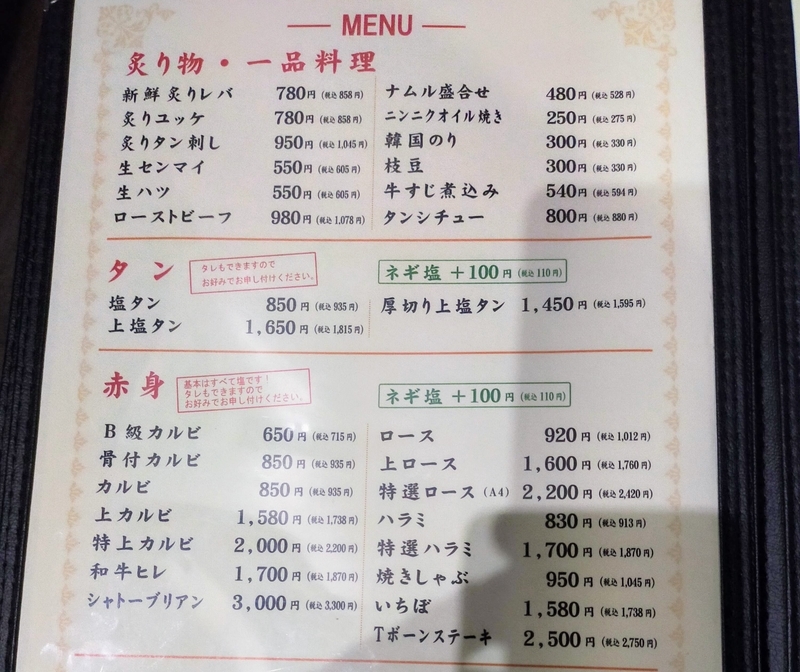 MENU
炙り物・一品料理
新鮮炙りレバ 780円(税込858円)
炙りユッケ 780円(税込858円)
炙りタン刺し 950円(税込1,045円)
生センマイ 550円(税込605円)
生ハツ 550円(税込605円)
ローストビーフ 980円(税込1,078円)
ナムル盛合せ 480円(税込528円)
ニンニクオイル焼き 250円(税込275円)
韓国のり 300円(税込330円)
枝豆 300円(税込330円)
牛すじ煮込み 540円(税込594円)
タンシチュー 800円(税込880円)
タン
タレもできますので
お好みでお申し付けください。
ネギ塩 +100円(税込110円)
塩タン 850円(税込935円)
上塩タン 1,650円(税込1,815円)
厚切り上塩タン 1,450円(税込1,595円)
赤身
基本はすべて塩です!
タレもできますので
お好みでお申し付けください。
ネギ塩 +100円(税込110円)
B級カルビ 650円(税込715円)
骨付カルビ 850円(税込935円)
カルビ 850円(税込935円)
上カルビ 1,580円(税込1,738円)
特上カルビ 2,000円(税込2,200円)
和牛ヒレ 1,700円(税込1,870円)
シャトーブリアン 3,000円(税込3,300円)
ロース 920円(税込1,012円)
上ロース 1,600円(税込1,760円)
特選ロース(A4) 2,200円(税込2,420円)
ハラミ 830円(税込913円)
特選ハラミ 1,700円(税込1,870円)
焼きしゃぶ 950円(税込1,045円)
いちぼ 1,580円(税込1,738円)
Tボーンステーキ 2,500円(税込2,750円)